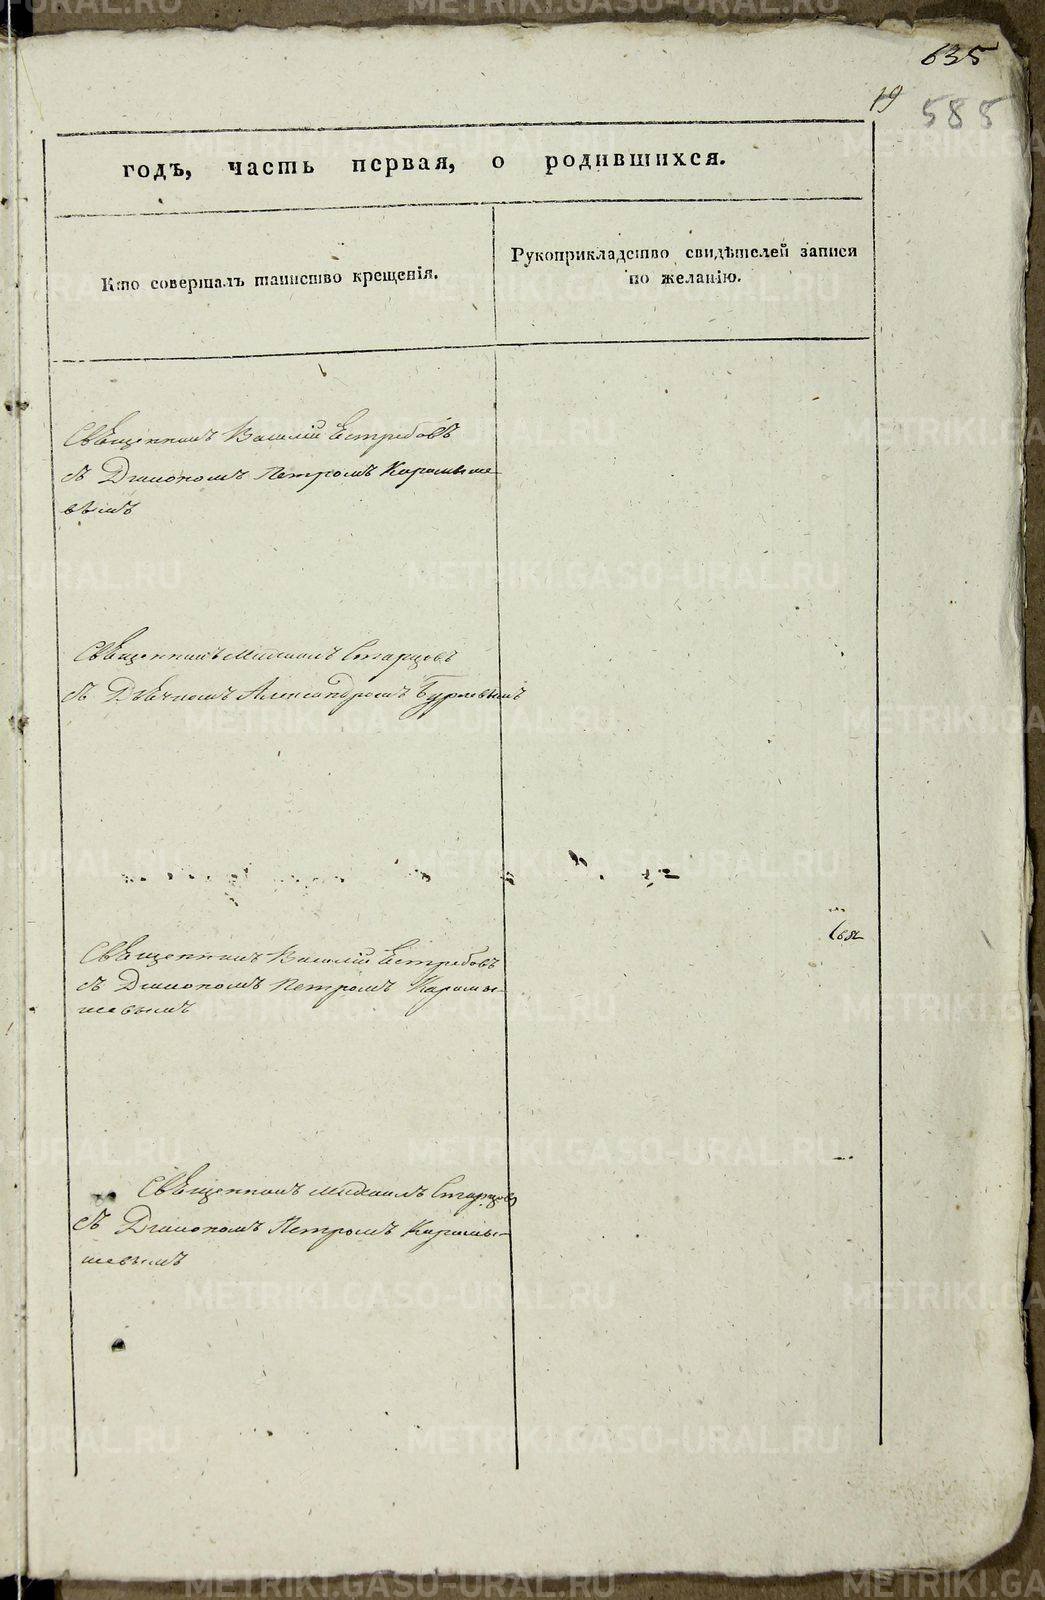 635
19 585
годъ, часть первая, о родившихся.
Кто совершалъ таинство крещенія.
Рукоприкладство свидѣтелей записи
по желанію.
Священникъ Василій Ястребовъ
съ Діакономъ Петромъ Карамыше-
вымъ
Священникъ Михаилъ Старцовъ
съ Дьячкомъ Александромъ Бурлевымъ
Священникъ Василій Ястребовъ
съ Діакономъ Петромъ Карамы-
шевымъ
Священникъ Михаилъ Старцовъ
съ Діакономъ Петромъ Карамы-
шевымъ
METRIKI.GASO-URAL.RU